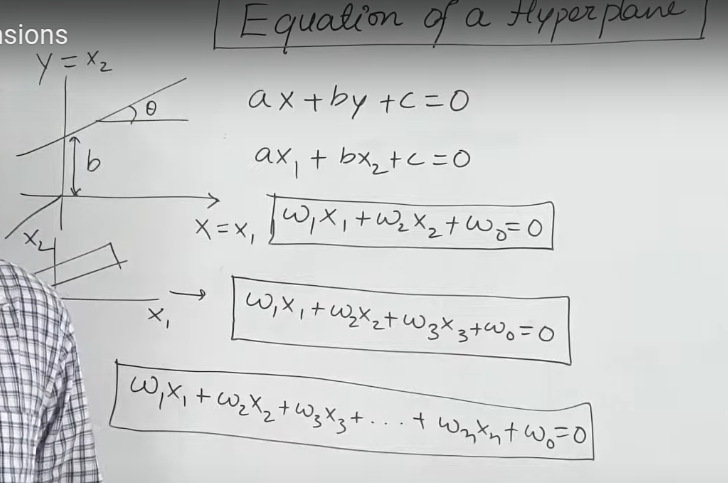 nsions
Equation of a Hyperplane
y = x₂
θ
b
x = x₁
ax + by + c = 0
ax₁ + bx₂ + c = 0
ω₁x₁ + ω₂x₂ + ω₀ = 0
x₂
x₁
ω₁x₁ + ω₂x₂ + ω₃x₃ + ω₀ = 0
ω₁x₁ + ω₂x₂ + ω₃x₃ + . . . + ωₙxₙ + ω₀ = 0